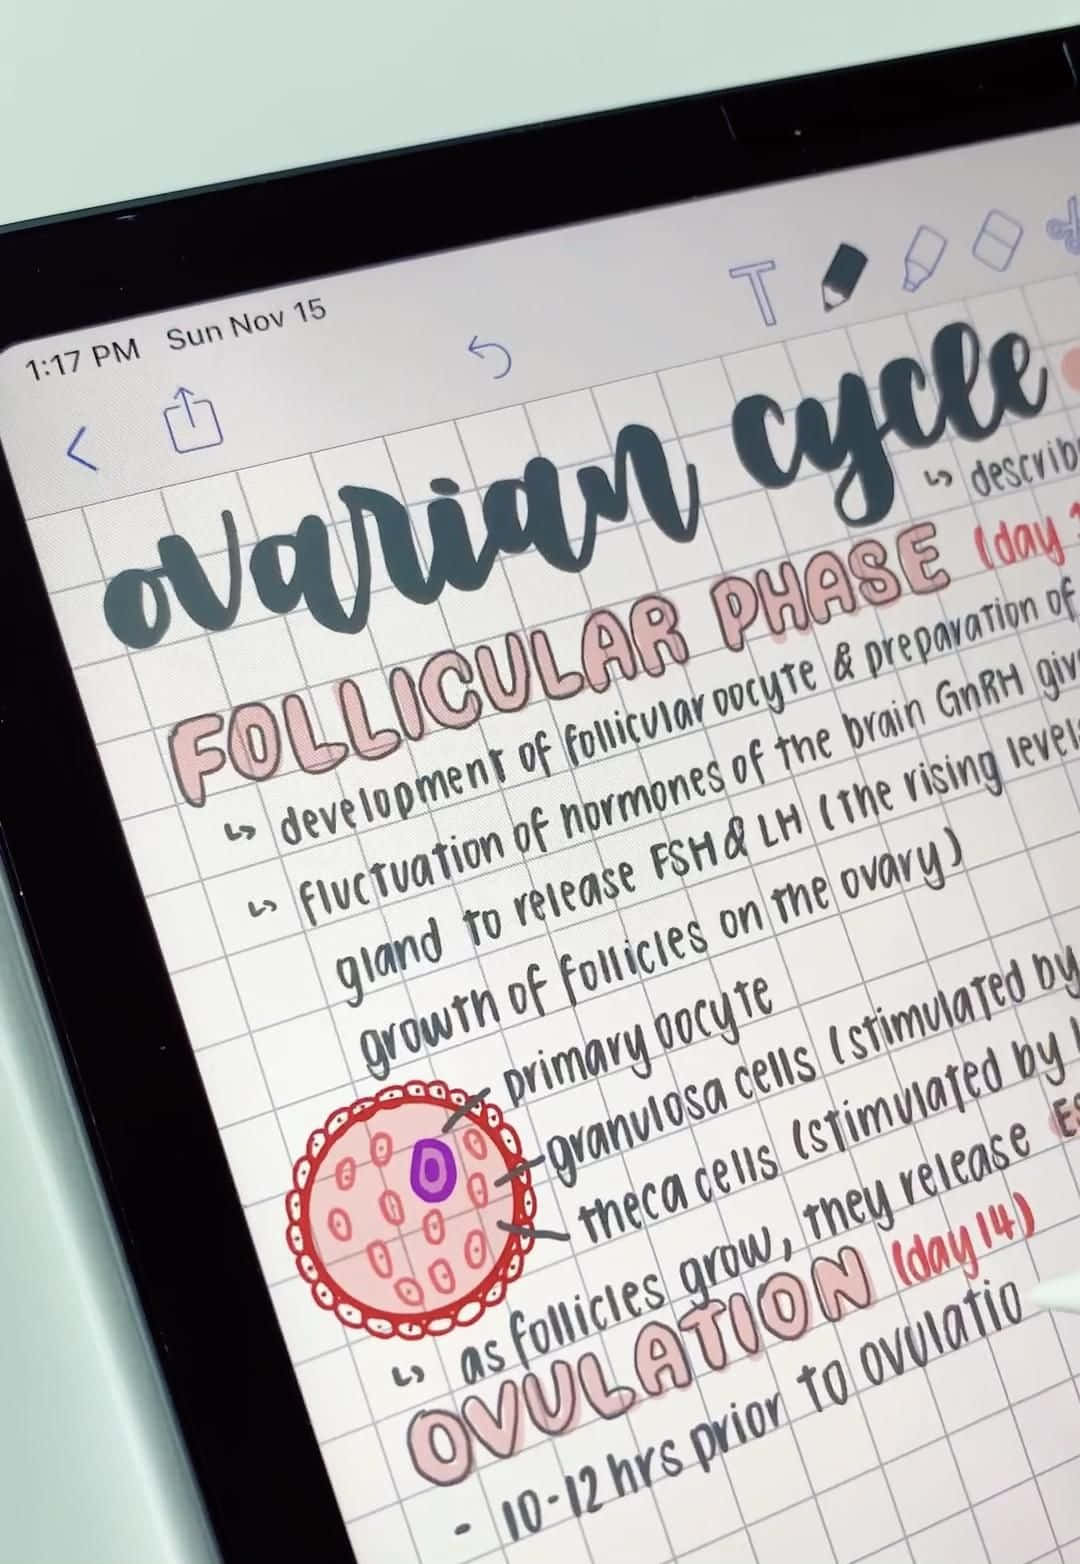 1:17 PM Sun Nov 15
T
ovarian cycle
↳ describ
FOLLICULAR PHASE (day 1
↳ development of follicular oocyte & preparation of
↳ fluctuation of hormones of the brain GnRH giv
gland to release FSH & LH (the rising levels
growth of follicles on the ovary)
primary oocyte
granulosa cells (stimulated by
theca cells (stimulated by L
↳ as follicles grow, they release Es
OVULATION (day 14)
- 10-12 hrs prior to ovulatio